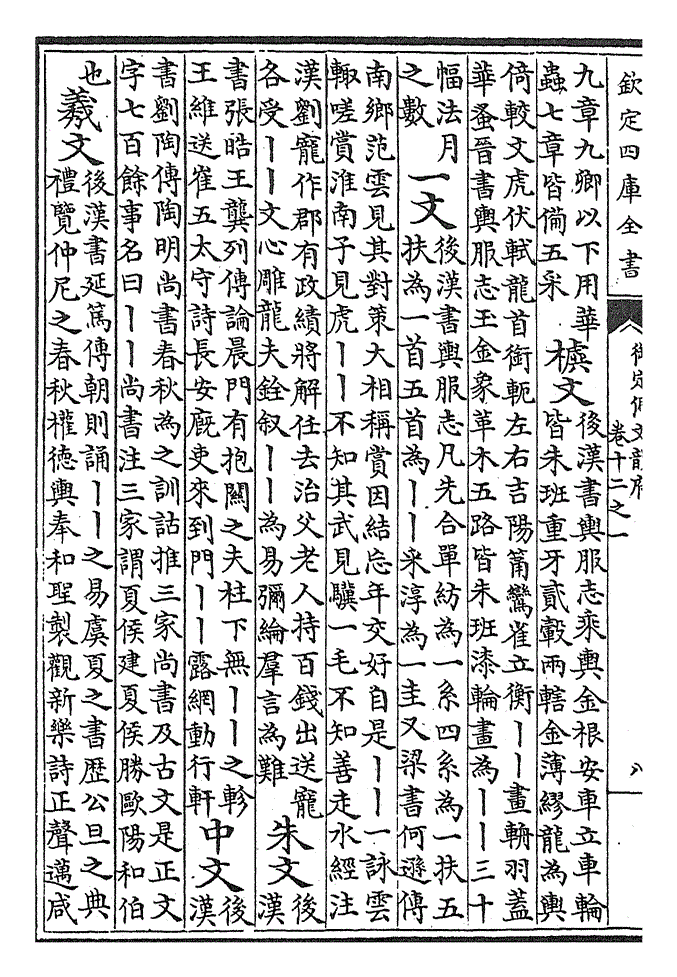 欽定四庫全書
御定佩文韻府
卷十二之一
八
九章九卿以下用華
蟲七章皆備五采
文
後漢書輿服志乘輿金根安車立車輪
皆朱班重牙貳轂兩轄金薄繆龍為輿
倚較文虎伏軾龍首銜軛左右吉陽筩鸞雀立衡丨丨畫輈羽蓋
華蚤晉書輿服志玉金象革木五路皆朱班漆輪畫為丨丨三十
幅法月
之數
一文
後漢書輿服志凡先合單紡為一系四系為一扶五
扶為一首五首為丨丨采淳為一圭又梁書何遜傳
南鄉范雲見其對策大相稱賞因結忘年交好自是丨丨一詠雲
輒嗟賞淮南子見虎丨丨不知其武見驥一毛不知善走水經注
漢劉寵作郡有政績將解任去治父老人持百錢出送寵
各受丨丨文心雕龍夫銓叙丨丨為易彌綸羣言為難
朱文
後
漢
書張皓王龔列傳論晨門有抱關之夫柱下無丨丨之軫
王維送崔五太守詩長安廐吏來到門丨丨露網動行軒
中文
後
漢
書劉陶傳陶明尚書春秋為之訓詁推三家尚書及古文是正文
字七百餘事名曰丨丨尚書注三家謂夏侯建夏侯勝歐陽和伯
也
羲文
後漢書延篤傳朝則誦丨丨之易虞夏之書歷公旦之典
禮覽仲尼之春秋權德輿奉和聖製觀新樂詩正聲邁咸